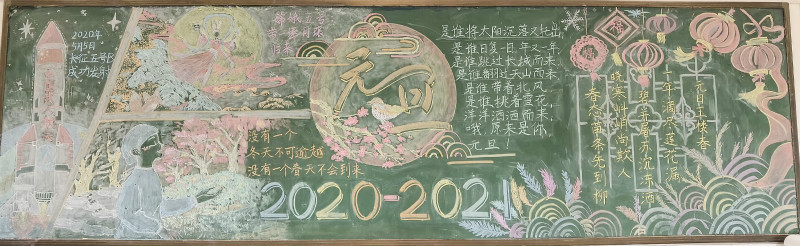 2020年
5月5日
长征五号B
成功发射
嫦娥五号
携月壤
归来
没有一个
冬天不可逾越
没有一个春天不会到来
元旦
是谁将太阳沉落又托出,
是谁日复一日,年又一年,
是谁跳过长城而来
是谁翻过天山而来
是谁带着北风
是谁挑着雪花,
洋洋洒洒而来,
哦,原来是你,
元旦!
2020-2021
福
元日玉枝香
十年满尽莲花漏
碧井屠苏沉冻酒
晓寒料峭尚欺人
春态苗条先到柳